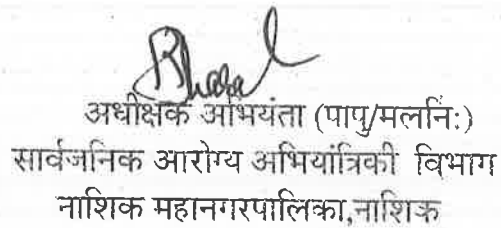 अधीक्षक अभियंता (पापु/मलनिः)
सार्वजनिक आरोग्य अभियांत्रिकी विभाग
नाशिक महानगरपालिका,नाशिक